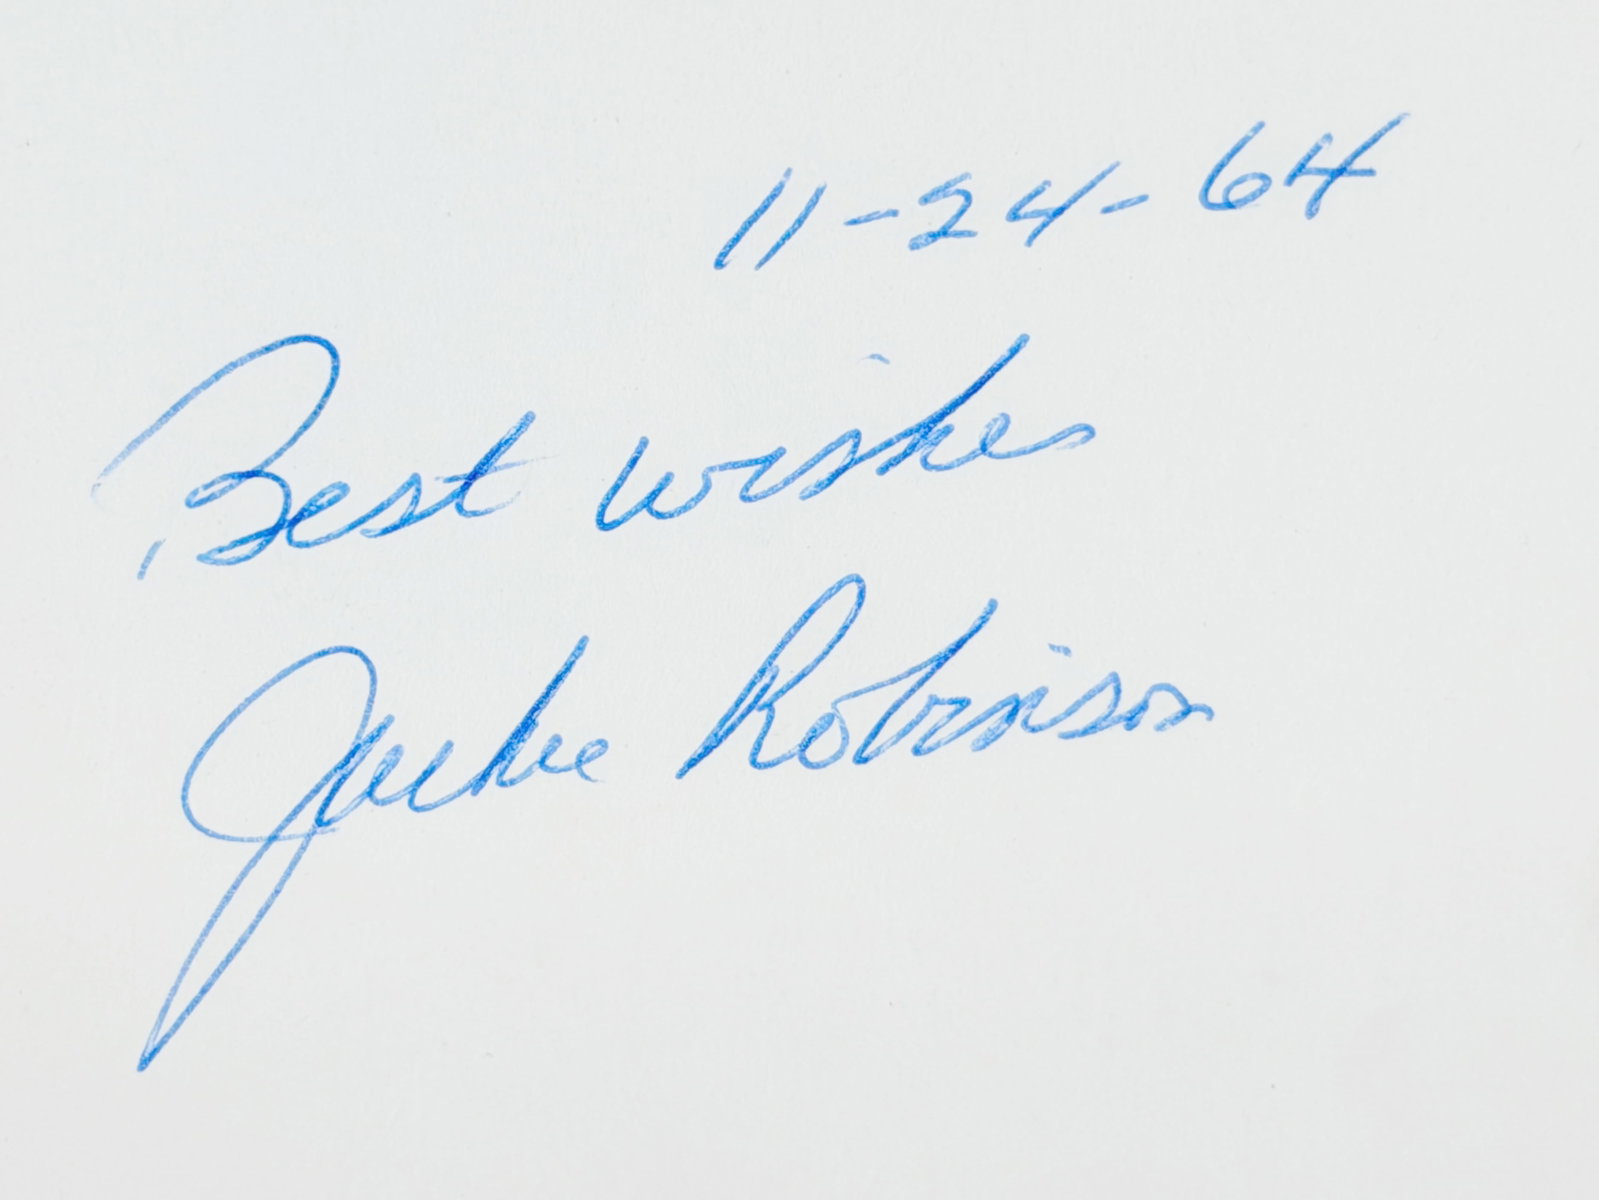 11-24-64
Best wishes
Jackie Robinson